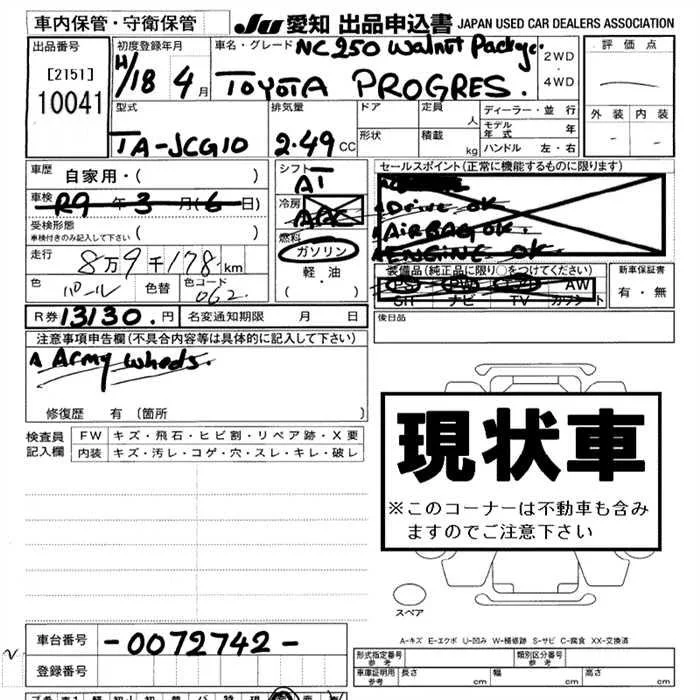 車内保管・守衛保管
JU 愛知 出品申込書 JAPAN USED CAR DEALERS ASSOCIATION
出品番号
[2151]
10041
初度登録年月
H/18 4月
車名・グレード NC250 Walnut Package.
TOYOTA PROGRES.
2WD
4WD
評価点
外装 内装
型式
TA-JCG10
排気量
2.49 CC
ドア
形状
定員 人
積載 kg
ディーラー・並行
モデル年式 年
ハンドル 左・右
車歴 自家用・( )
車検 R9年3月(6日)
受検形態
車検付きのみ記入して下さい ( )
走行 8万9千178km
色 パール 色替 色コード 062
シフト AT
冷房 AAC
燃料
ガソリン
軽・油
( )
セールスポイント(正常に機能するものに限ります)
Drive OK
AIRBAG OK.
ENGINE OK
装備品(純正品に限り○をつけてください)
PS PW AW
ナビ TV
新車保証書
有・無
R券 13130.円 名変通知期限 月 日
後日品
注意事項申告欄(不具合内容等は具体的に記入して下さい)
Army wheels.
修復歴 有 〔箇所 〕
検査員記入欄
FW キズ・飛石・ヒビ割・リペア跡・X要
内装 キズ・汚レ・コゲ・穴・スレ・キレ・破レ
現状車
※このコーナーは不動車も含み
ますのでご注意下さい
スペア
A-キズ E-エクボ U-凹み W-補修跡 S-サビ C-腐食 XX-交換済
車台番号 -0072742-
登録番号
形式指定番号 参考
類別区分番号 参考
車庫証明用 参考 長さ cm 幅 cm 高さ cm